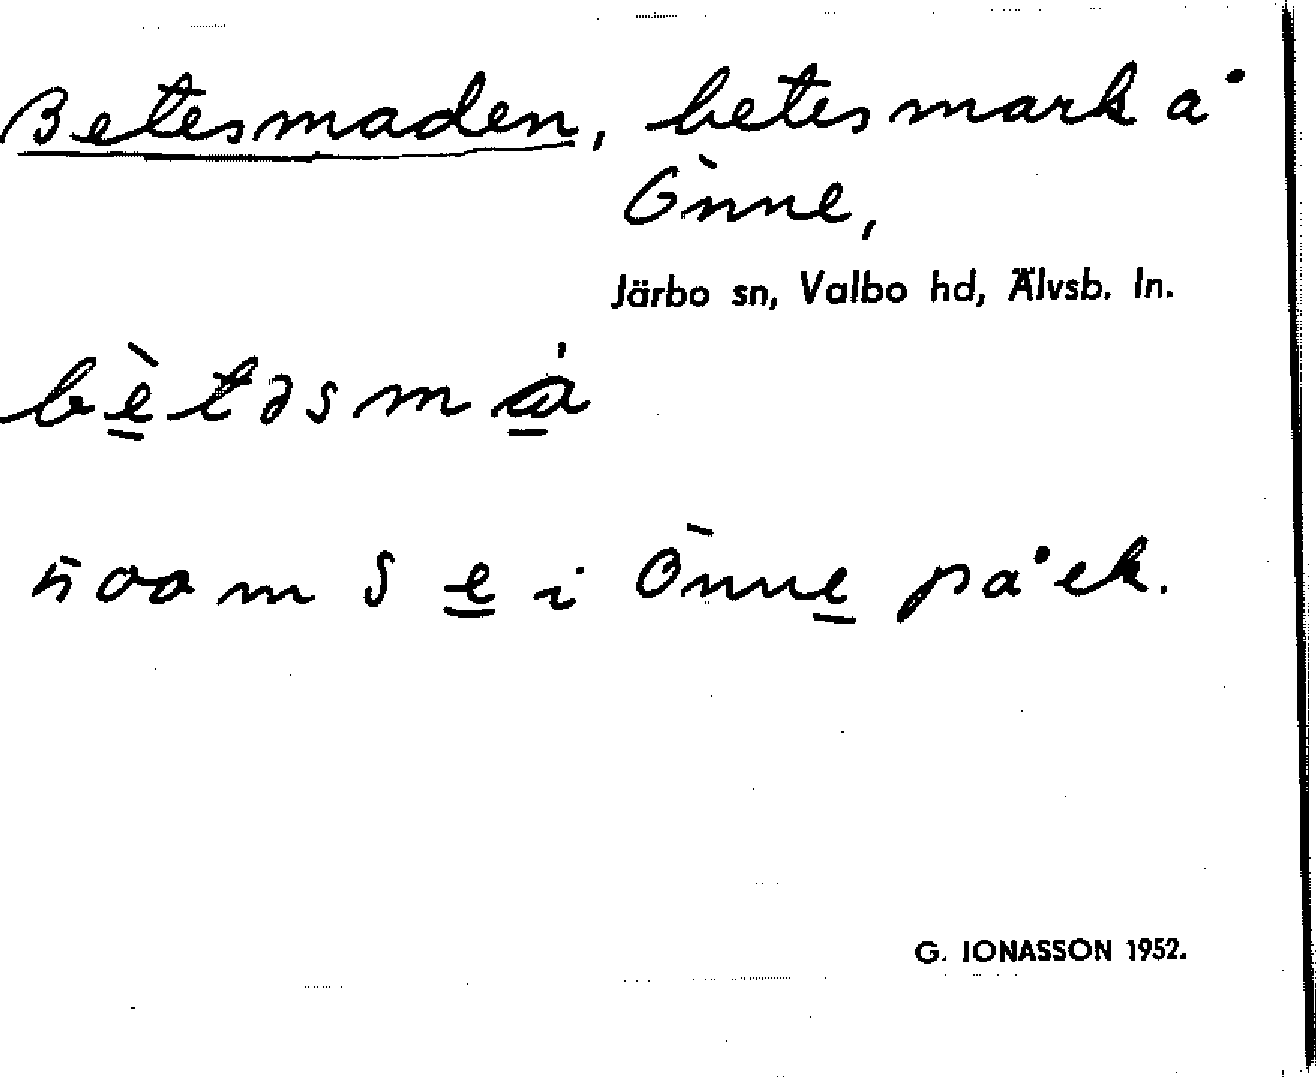 Betesmaden, betesmark å
Önne,
Järbo sn, Valbo hd, Älvsb. ln.
bètəsmá
i Önne på ek.
G. IONASSON 1952.